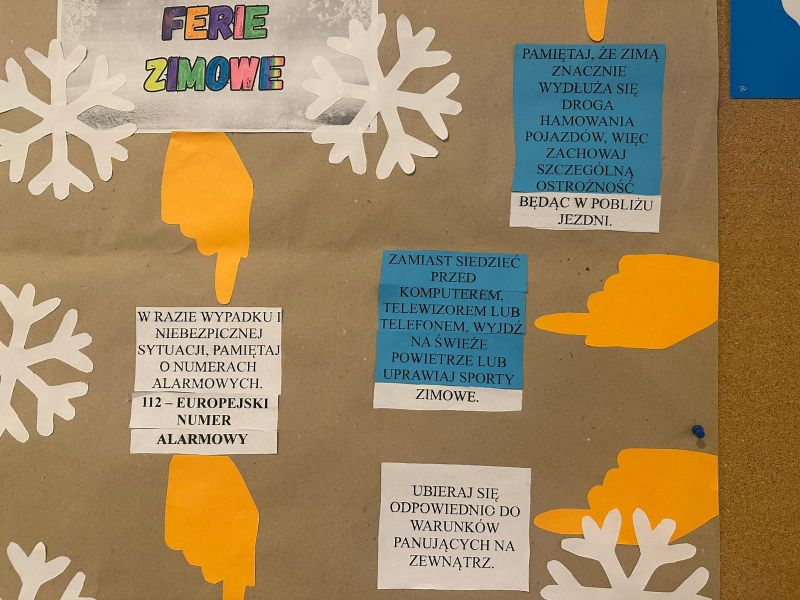 FERIE
ZIMOWE
PAMIĘTAJ, ŻE ZIMĄ
ZNACZNIE
WYDŁUŻA SIĘ
DROGA
HAMOWANIA
POJAZDÓW, WIĘC
ZACHOWAJ
SZCZEGÓLNĄ
OSTROŻNOŚĆ
BĘDĄC W POBLIŻU
JEZDNI.
ZAMIAST SIEDZIEĆ
PRZED
KOMPUTEREM,
TELEWIZOREM LUB
TELEFONEM, WYJDŹ
NA ŚWIEŻE
POWIETRZE LUB
UPRAWIAJ SPORTY
ZIMOWE.
W RAZIE WYPADKU I
NIEBEZPICZNEJ
SYTUACJI, PAMIĘTAJ
O NUMERACH
ALARMOWYCH.
112 – EUROPEJSKI
NUMER
ALARMOWY
UBIERAJ SIĘ
ODPOWIEDNIO DO
WARUNKÓW
PANUJĄCYCH NA
ZEWNĄTRZ.